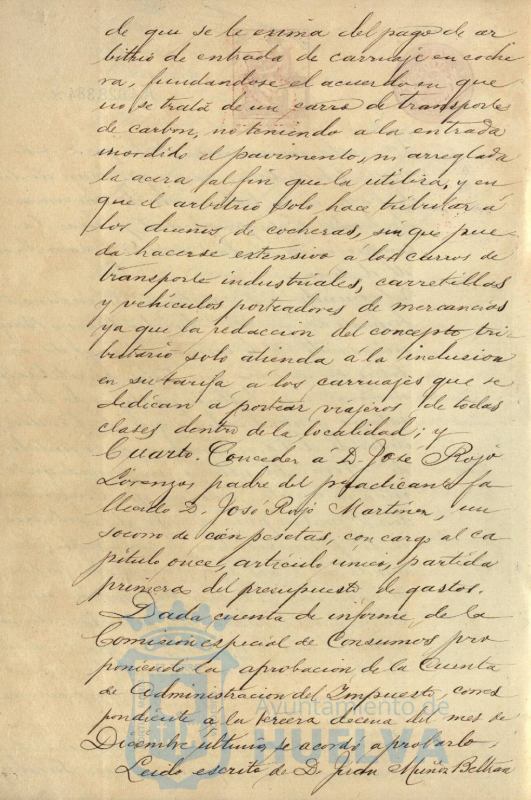 de que se le exima del pago de ar
bitrio de entrada de carruaje en coche
ra, fundandose el acuerdo en que
no se trata de un carro de transporte
de carbon, no teniendo á la entrada
mordido el pavimento, ni arreglada
la acera al fin que la utiliza, y en
que el arbitrio solo hace tributar á
los dueños de cocheras, sin que pue-
da hacerse extensivo á los carros de
transporte industriales, carretillas
y vehículos porteadores de mercancias
ya que la redaccion del concepto tri-
butario solo atienda á la inclusion
en su tarifa á los carruajes que se
dedican a portear viajeros de todas
clases dentro de la localidad; y
Cuarto. Conceder á D. José Rojo
Lorenzo, padre del practicante fa
llecido D. José Rojo Martinez, un
socorro de cien pesetas, con cargo al ca
pítulo once, artículo unico, partida
primera del presupuesto de gastos.
Dada cuenta de informe de la
Comisión especial de Consumos pro
poniendo la aprobación de la Cuenta
de Administracion del Impuesto, corres
pondiente á la tercera decena del mes de
Diciembre último, se acordó aprobarlo.
Leido escrito de D. Juan Muñoz Beltran
Ayuntamiento de
HUELVA